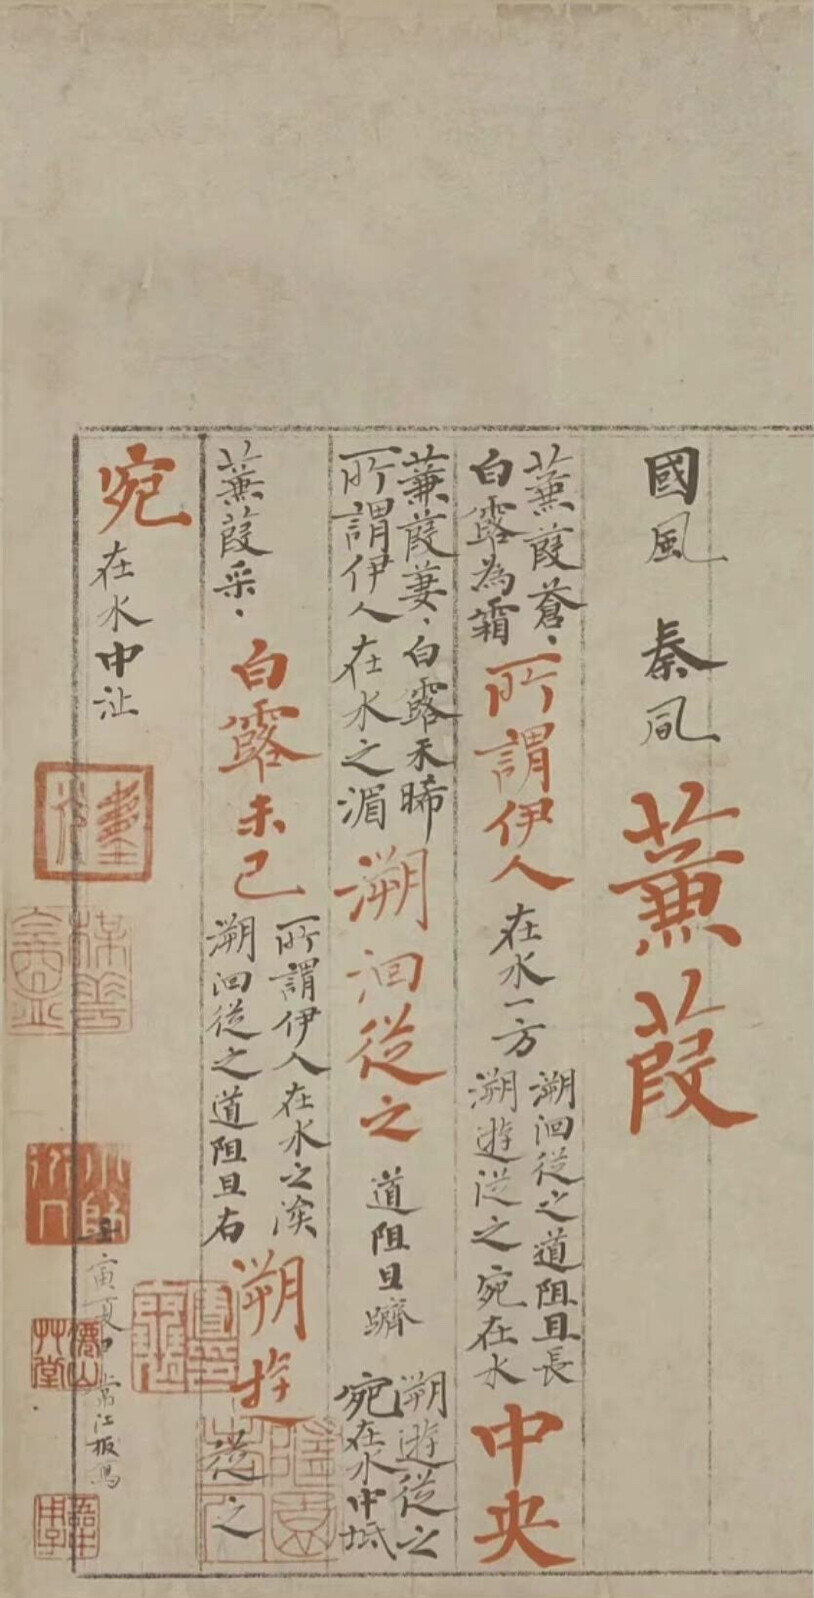 國風 秦風 蒹葭
蒹葭蒼、
白露為霜
所謂伊人
在水一方
溯洄從之道阻且長
溯游從之宛在水
中央
蒹葭萋、白露未晞
所謂伊人在水之湄
溯洄從之
道阻且躋
溯游從之
宛在水中坻
蒹葭采、
白露未已
所謂伊人在水之涘
溯洄從之道阻且右
溯游
從之
宛
在水中沚
壬寅夏日常江